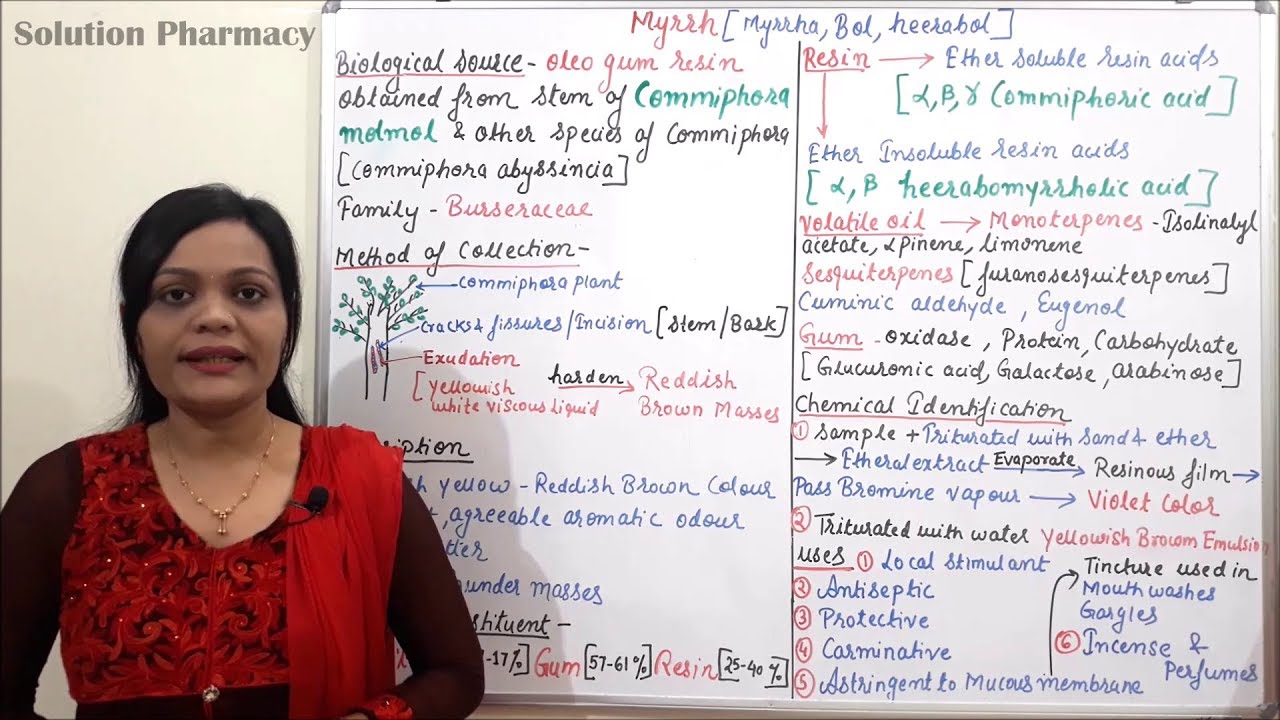 Solution Pharmacy
Myrrh [Myrrha, Bol, heerabol]
Biological source - oleo gum resin
obtained from stem of Commiphora
molmol & other species of Commiphora
[Commiphora abyssincia]
Family - Burseraceae
Method of Collection -
Commiphora plant
Cracks & fissures/Incision [Stem/Bark]
Exudation
[yellowish
white viscous liquid
harden
Reddish
Brown Masses
yellow - Reddish Brown Colour
, agreeable aromatic odour
masses
-17%] Gum [57-61%] Resin [25-40%]
Resin → Ether soluble resin acids
[α, β, γ Commiphoric acid]
Ether Insoluble resin acids
[α, β heerabomyrrholic acid]
Volatile oil → Monoterpenes - Isolinalyl
acetate, α pinene, limonene
Sesquiterpenes [furanosesquiterpenes]
Cuminic aldehyde, Eugenol
Gum - oxidase, Protein, Carbohydrate
[Glucuronic acid, Galactose, arabinose]
Chemical Identification
① Sample + Triturated with sand & ether
→ Etheral extract Evaporate → Resinous film →
Pass Bromine vapour → Violet Color
② Triturated with water Yellowish Brown Emulsion
uses ① Local stimulant
② Antiseptic
③ Protective
④ Carminative
⑤ Astringent to Mucous membrane
Tincture used in
Mouth washes
Gargles
⑥ Incense &
Perfumes